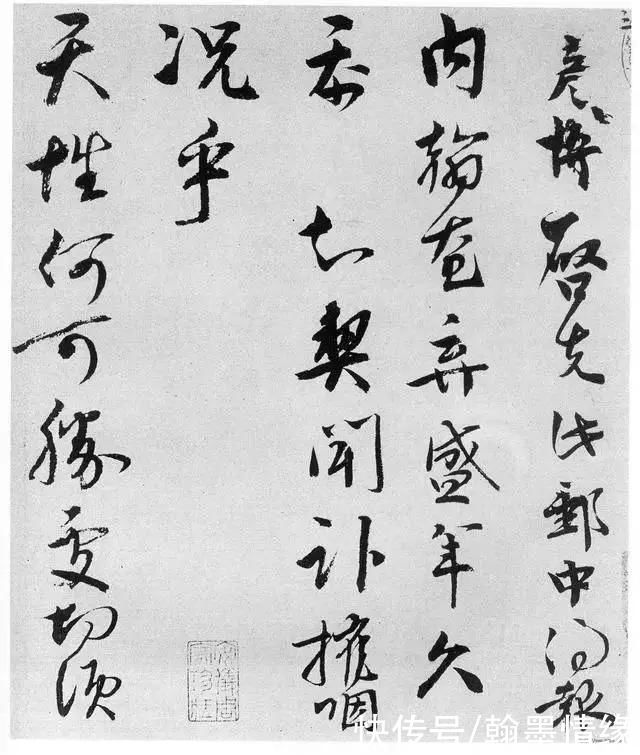 彥博啓郵中得報
内翰奄弃盛年久
忝 知契聞訃摧咽
况乎
天性何可勝處切須
快传号/翰墨情缘